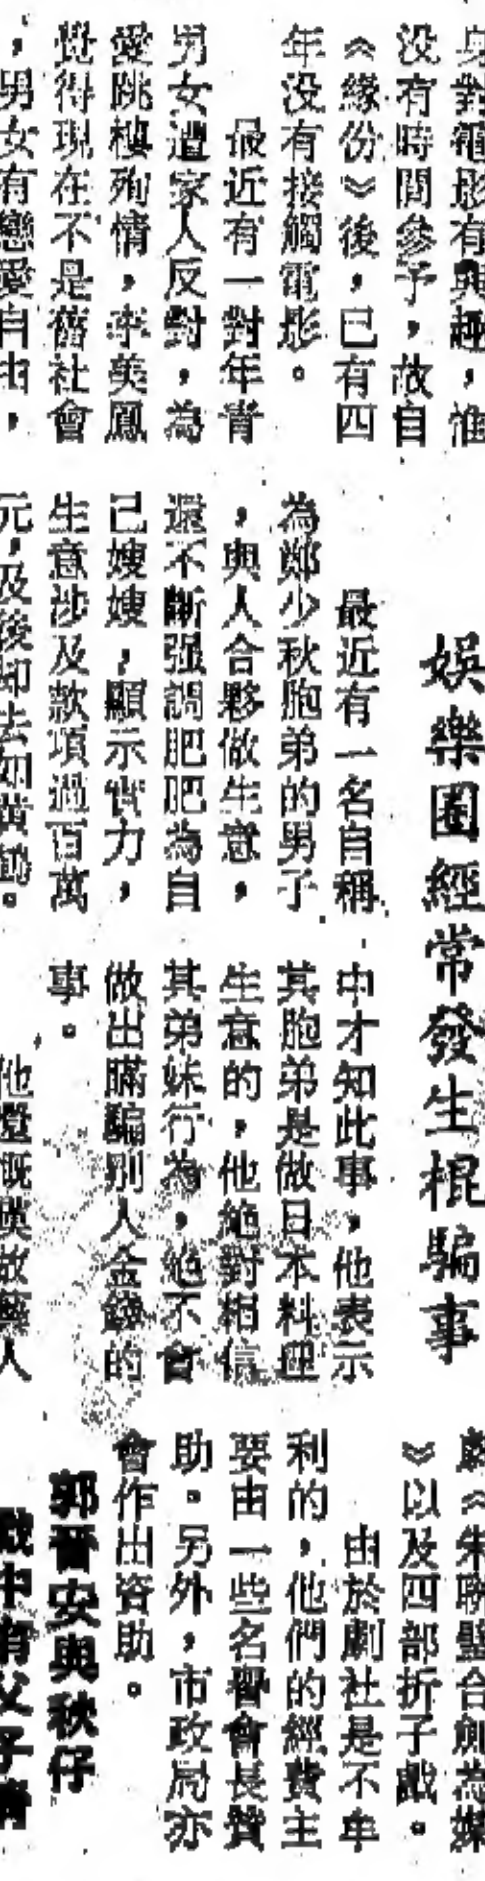 身對電影有興趣，惟
没有時間參予，故自
《緣份》後，已有四
年没有接觸電影。
最近有一對年青
男女遭家人反對，為
愛跳樓殉情，李美鳳
覺得現在不是舊社會
，男女有戀愛自由，
娛樂圈經常發生棍騙事
最近有一名自稱
為鄭少秋胞弟的男子
，與人合夥做生意，
還不斷强調肥肥為自
己嫂嫂，顯示實力，
生意涉及款項過百萬
元，及後却去如黃鶴。
中才知此事，他表示
其胞弟是做日本料理
生意的，他絶對相信
其弟妹行為，絶不會
做出瞞騙別人金錢的
事。
他慨嘆做藝人
《朱聯璧合劍為媒
》以及四部折子戲。
由於劇社是不牟
利的，他們的經費主
要由一些名譽會長贊
助。另外，市政局亦
會作出資助。
郭晉安與秋仔
戲中有父子情